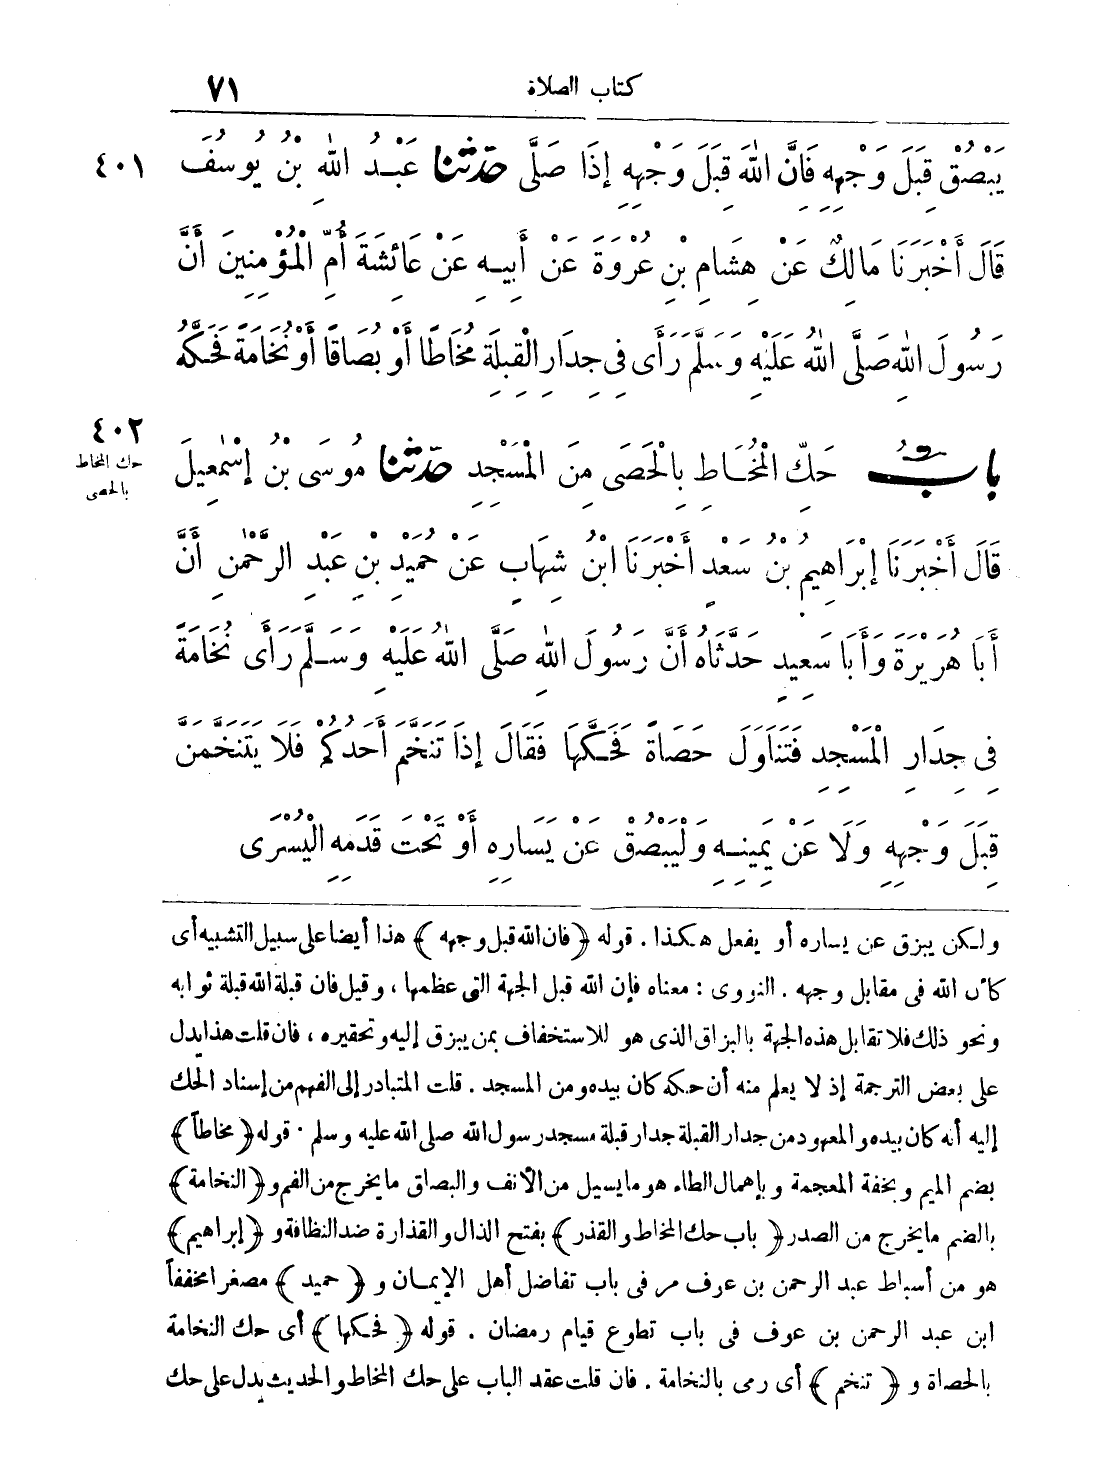 كتاب الصلاة ٧١
يَبْصُقْ قِبَلَ وَجْهِهِ فَانَّ اللهَ قِبَلَ وَجْهِهِ إِذَا صَلَّى حدثنا عَبْدُ اللهِ بْنُ يُوسُفَ ٤٠١
قَالَ أَخْبَرَنَا مَالِكٌ عَنْ هِشَامِ بْنِ عُرْوَةَ عَنْ أَبِيهِ عَنْ عَائِشَةَ أُمِّ الْمُؤْمِنِينَ أَنَّ
رَسُولَ اللهِ صَلَّى اللهُ عَلَيْهِ وَسَلَّمَ رَأَى فِى جِدَارِ الْقِبْلَةِ مُخَاطًا أَوْ بُصَاقًا أَوْ نُخَامَةً فَحَكَّهُ
بابُ حَكِّ الْمُخَاطِ بِالْحَصَى مِنَ الْمَسْجِدِ حدثنا مُوسَى بْنُ إِسْمٰعِيلَ ٤٠٢
حك المخاط
بالحصى
قَالَ أَخْبَرَنَا إِبْرَاهِيمُ بْنُ سَعْدٍ أَخْبَرَنَا ابْنُ شِهَابٍ عَنْ حُمَيْدِ بْنِ عَبْدِ الرَّحْمٰنِ أَنَّ
أَبَا هُرَيْرَةَ وَأَبَا سَعِيدٍ حَدَّثَاهُ أَنَّ رَسُولَ اللهِ صَلَّى اللهُ عَلَيْهِ وَسَلَّمَ رَأَى نُخَامَةً
فِى جِدَارِ الْمَسْجِدِ فَتَنَاوَلَ حَصَاةً فَحَكَّهَا فَقَالَ إِذَا تَنَخَّمَ أَحَدُكُمْ فَلَا يَتَنَخَّمَنَّ
قِبَلَ وَجْهِهِ وَلَا عَنْ يَمِينِهِ وَلْيَبْصُقْ عَنْ يَسَارِهِ أَوْ تَحْتَ قَدَمِهِ الْيُسْرَى
ولكن يبزق عن يساره أو يفعل هكذا . قوله ﴿فان الله قبل وجهه﴾ هذا أيضا على سبيل التشبيه أى
كأن الله فى مقابل وجهه . النووى : معناه فإن الله قبل الجهة التى عظمها ، وقيل فان قبلة الله قبلة ثوابه
ونحو ذلك فلا تقابل هذه الجهة بالبزاق الذى هو للاستخفاف بمن يبزق إليه وتحقيره ، فان قلت هذا يدل
على بعض الترجمة إذ لا يعلم منه أن حكه كان بيده ومن المسجد . قلت المتبادر إلى الفهم من إسناد الحك
إليه أنه كان بيده والمعهود من جدار القبلة جدار قبلة مسجد رسول الله صلى الله عليه وسلم . قوله ﴿مخاطاً﴾
بضم الميم وبخفة المعجمة وبإهمال الطاء هو ما يسيل من الأنف والبصاق ما يخرج من الفم و ﴿النخامة﴾
بالضم ما يخرج من الصدر ﴿باب حك المخاط والقذر﴾ بفتح الذال والقذارة ضد النظافة و ﴿إبراهيم﴾
هو من أسباط عبد الرحمن بن عوف مر فى باب تفاضل أهل الإيمان و ﴿حميد﴾ مصغرا مخففاً
ابن عبد الرحمن بن عوف فى باب تطوع قيام رمضان . قوله ﴿فحكها﴾ أى حك النخامة
بالحصاة و ﴿تنخم﴾ أى رمى بالنخامة . فان قلت عقد الباب على حك المخاط والحديث يدل على حك